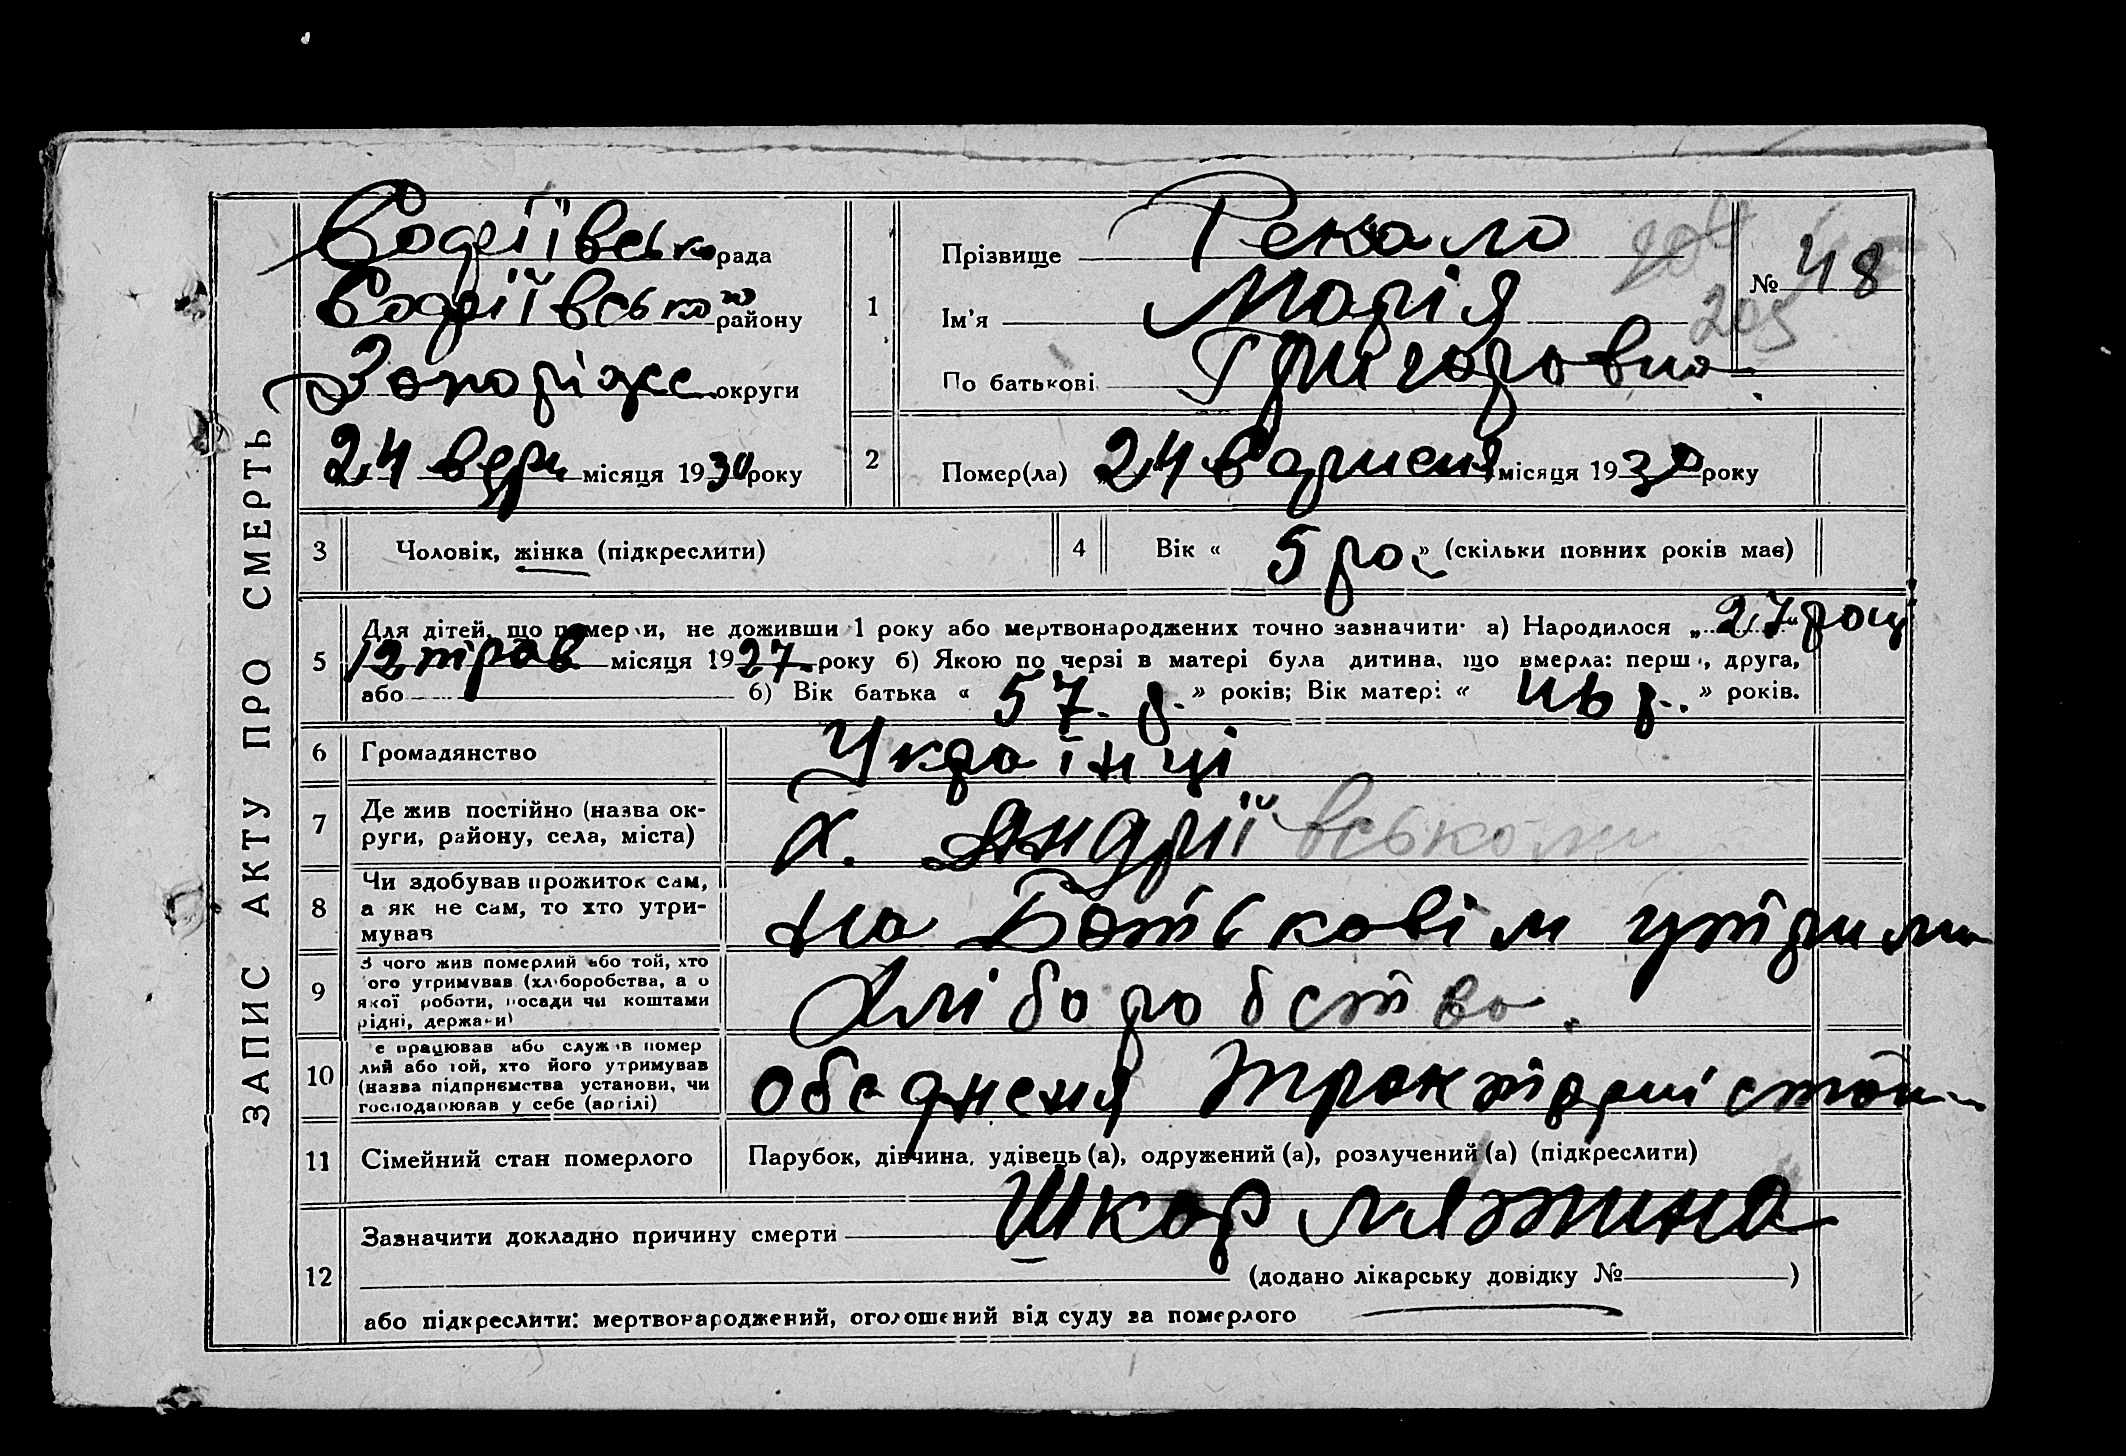 ЗАПИС АКТУ ПРО СМЕРТЬ
Софіївсько рада
Софіївського району
Запоріже округи
24 вери місяця 1930 року
1
Прізвище Рекало
Ім'я Марія
По батькові Григоровна
№ 48
205
2
Помер(ла) 24 вериеня місяця 1930 року
3
Чоловік, жінка (підкреслити)
4
Вік « 5 ро » (скільки повних років має)
5
Для дітей, що померли, не доживши 1 року або мертвонароджених точно зазначити: а) Народилося „ 27 році
12 трав місяця 1927 року б) Якою по черзі в матері була дитина, що вмерла: перша, друга,
або б) Вік батька « 57. р. » років; Вік матері « р. » років.
6
Громадянство
Українці
7
Де жив постійно (назва ок-
руги, району, села, міста)
х. Андріївському
8
Чи здобував прожиток сам,
а як не сам, то хто утри-
мував
на Батьковім утрима
9
З чого жив померлий або той, хто
його утримував (хліборобства, а о
якої роботи, посади чи коштами
рідні, держави)
Хліборобство.
10
Де працював або служив помер
лий або той, хто його утримував
(назва підприємства установи, чи
господарював у себе (артілі)
обєднення
11
Сімейний стан померлого
Парубок, дівчина, удівець (а), одружений (а), розлучений (а) (підкреслити)
12
Зазначити докладно причину смерти Шкарлятина
(додано лікарську довідку № )
або підкреслити: мертвонароджений, оголошений від суду за померлого